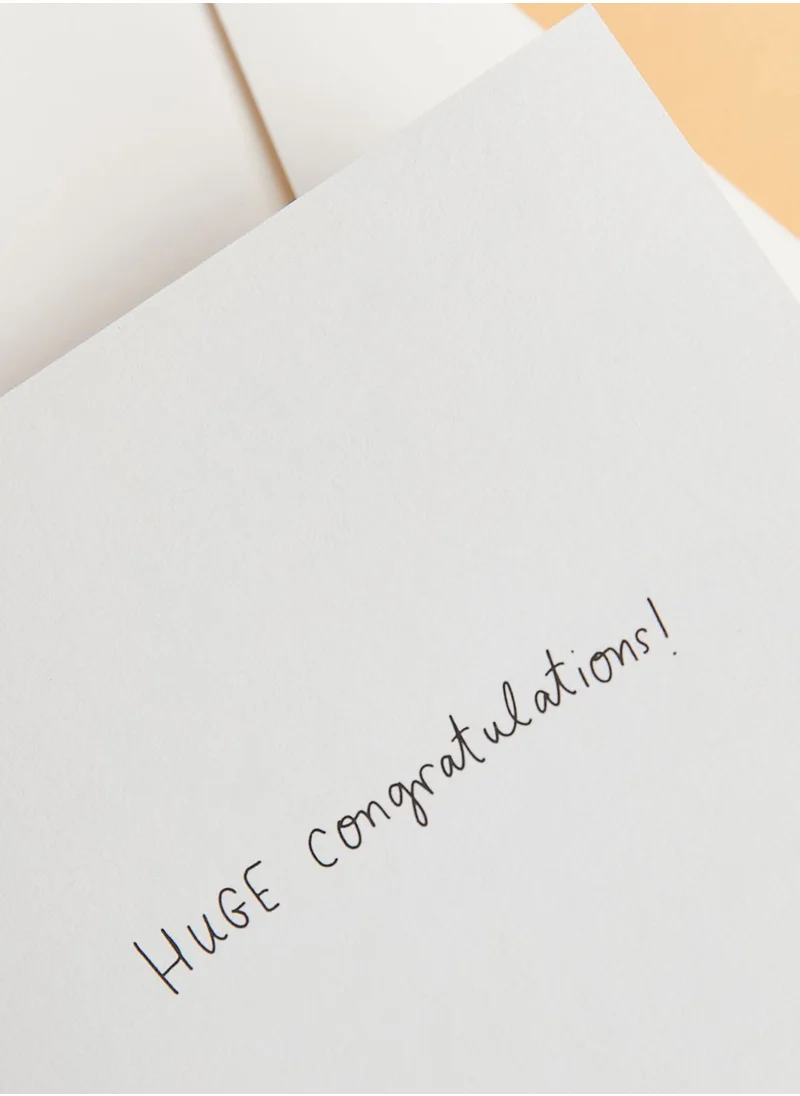 HUGE congratulations!